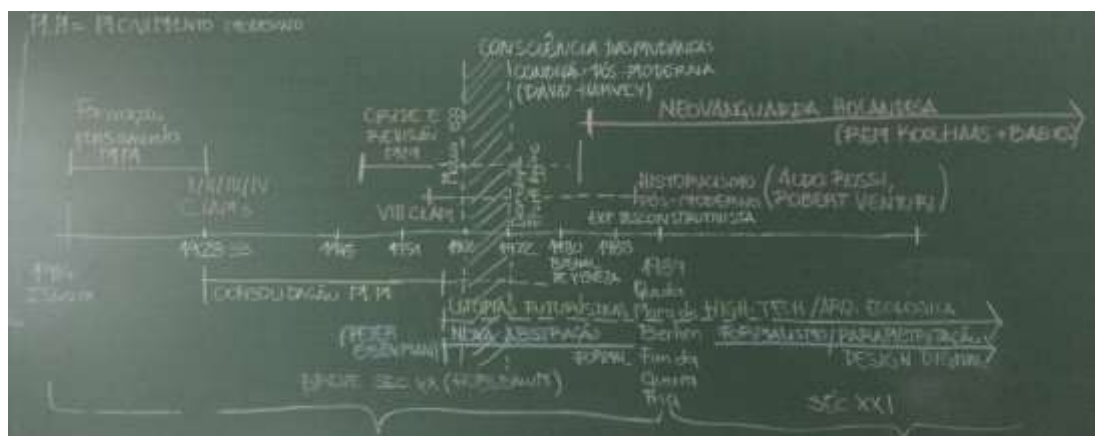 M.M = MOVIMENTO MODERNO
CONSCIÊNCIA DAS MUDANÇAS
CONDIÇÃO PÓS-MODERNA
(DAVID HARVEY)
FORMAÇÃO
PENSAMENTO
M.M
CRISE E
REVISÃO
M.M
NEOVANGUARDA HOLANDESA
(REM KOOLHAAS +
Maio
CIAMS
VIII CIAM
HISTORICISMO
PÓS-MODERNO
(ALDO ROSSI,
ROBERT VENTURI)
EXP. DESCONSTRUTIVISTA
1928
1945
1951
1972
1980
1988
BIENAL
DE VENEZA
1989
Queda
Muro de
Berlim
Fim da
Guerra
Fria
CONSOLIDAÇÃO M.M
UTOPIAS FUTURÍSTICAS
HIGH-TECH / ARQ. ECOLÓGICA
(PETER
EISENMAN)
NOVA ABSTRAÇÃO
FORMAL
FORMALISMO/PARAMETRIZAÇÃO
DESIGN DIGITAL
BREVE SÉC XX (HOBSBAWM)
SÉC XXI